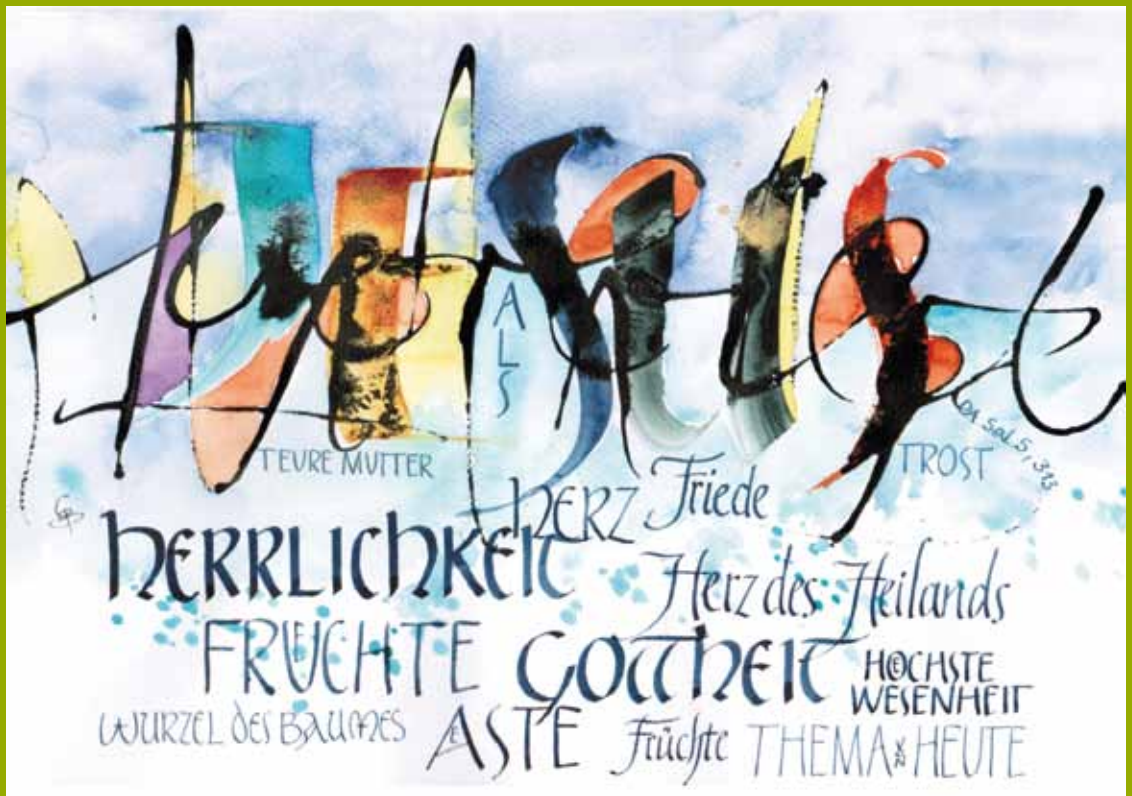 ALS
TEURE MUTTER
TROST
HERZ Friede
HERRLICHKEIT
Herz des Heilands
FRUECHTE GOTTHEIT HOECHSTE
WESENHEIT
WURZEL DES BAUMES AESTE Früchte THEMA HEUTE